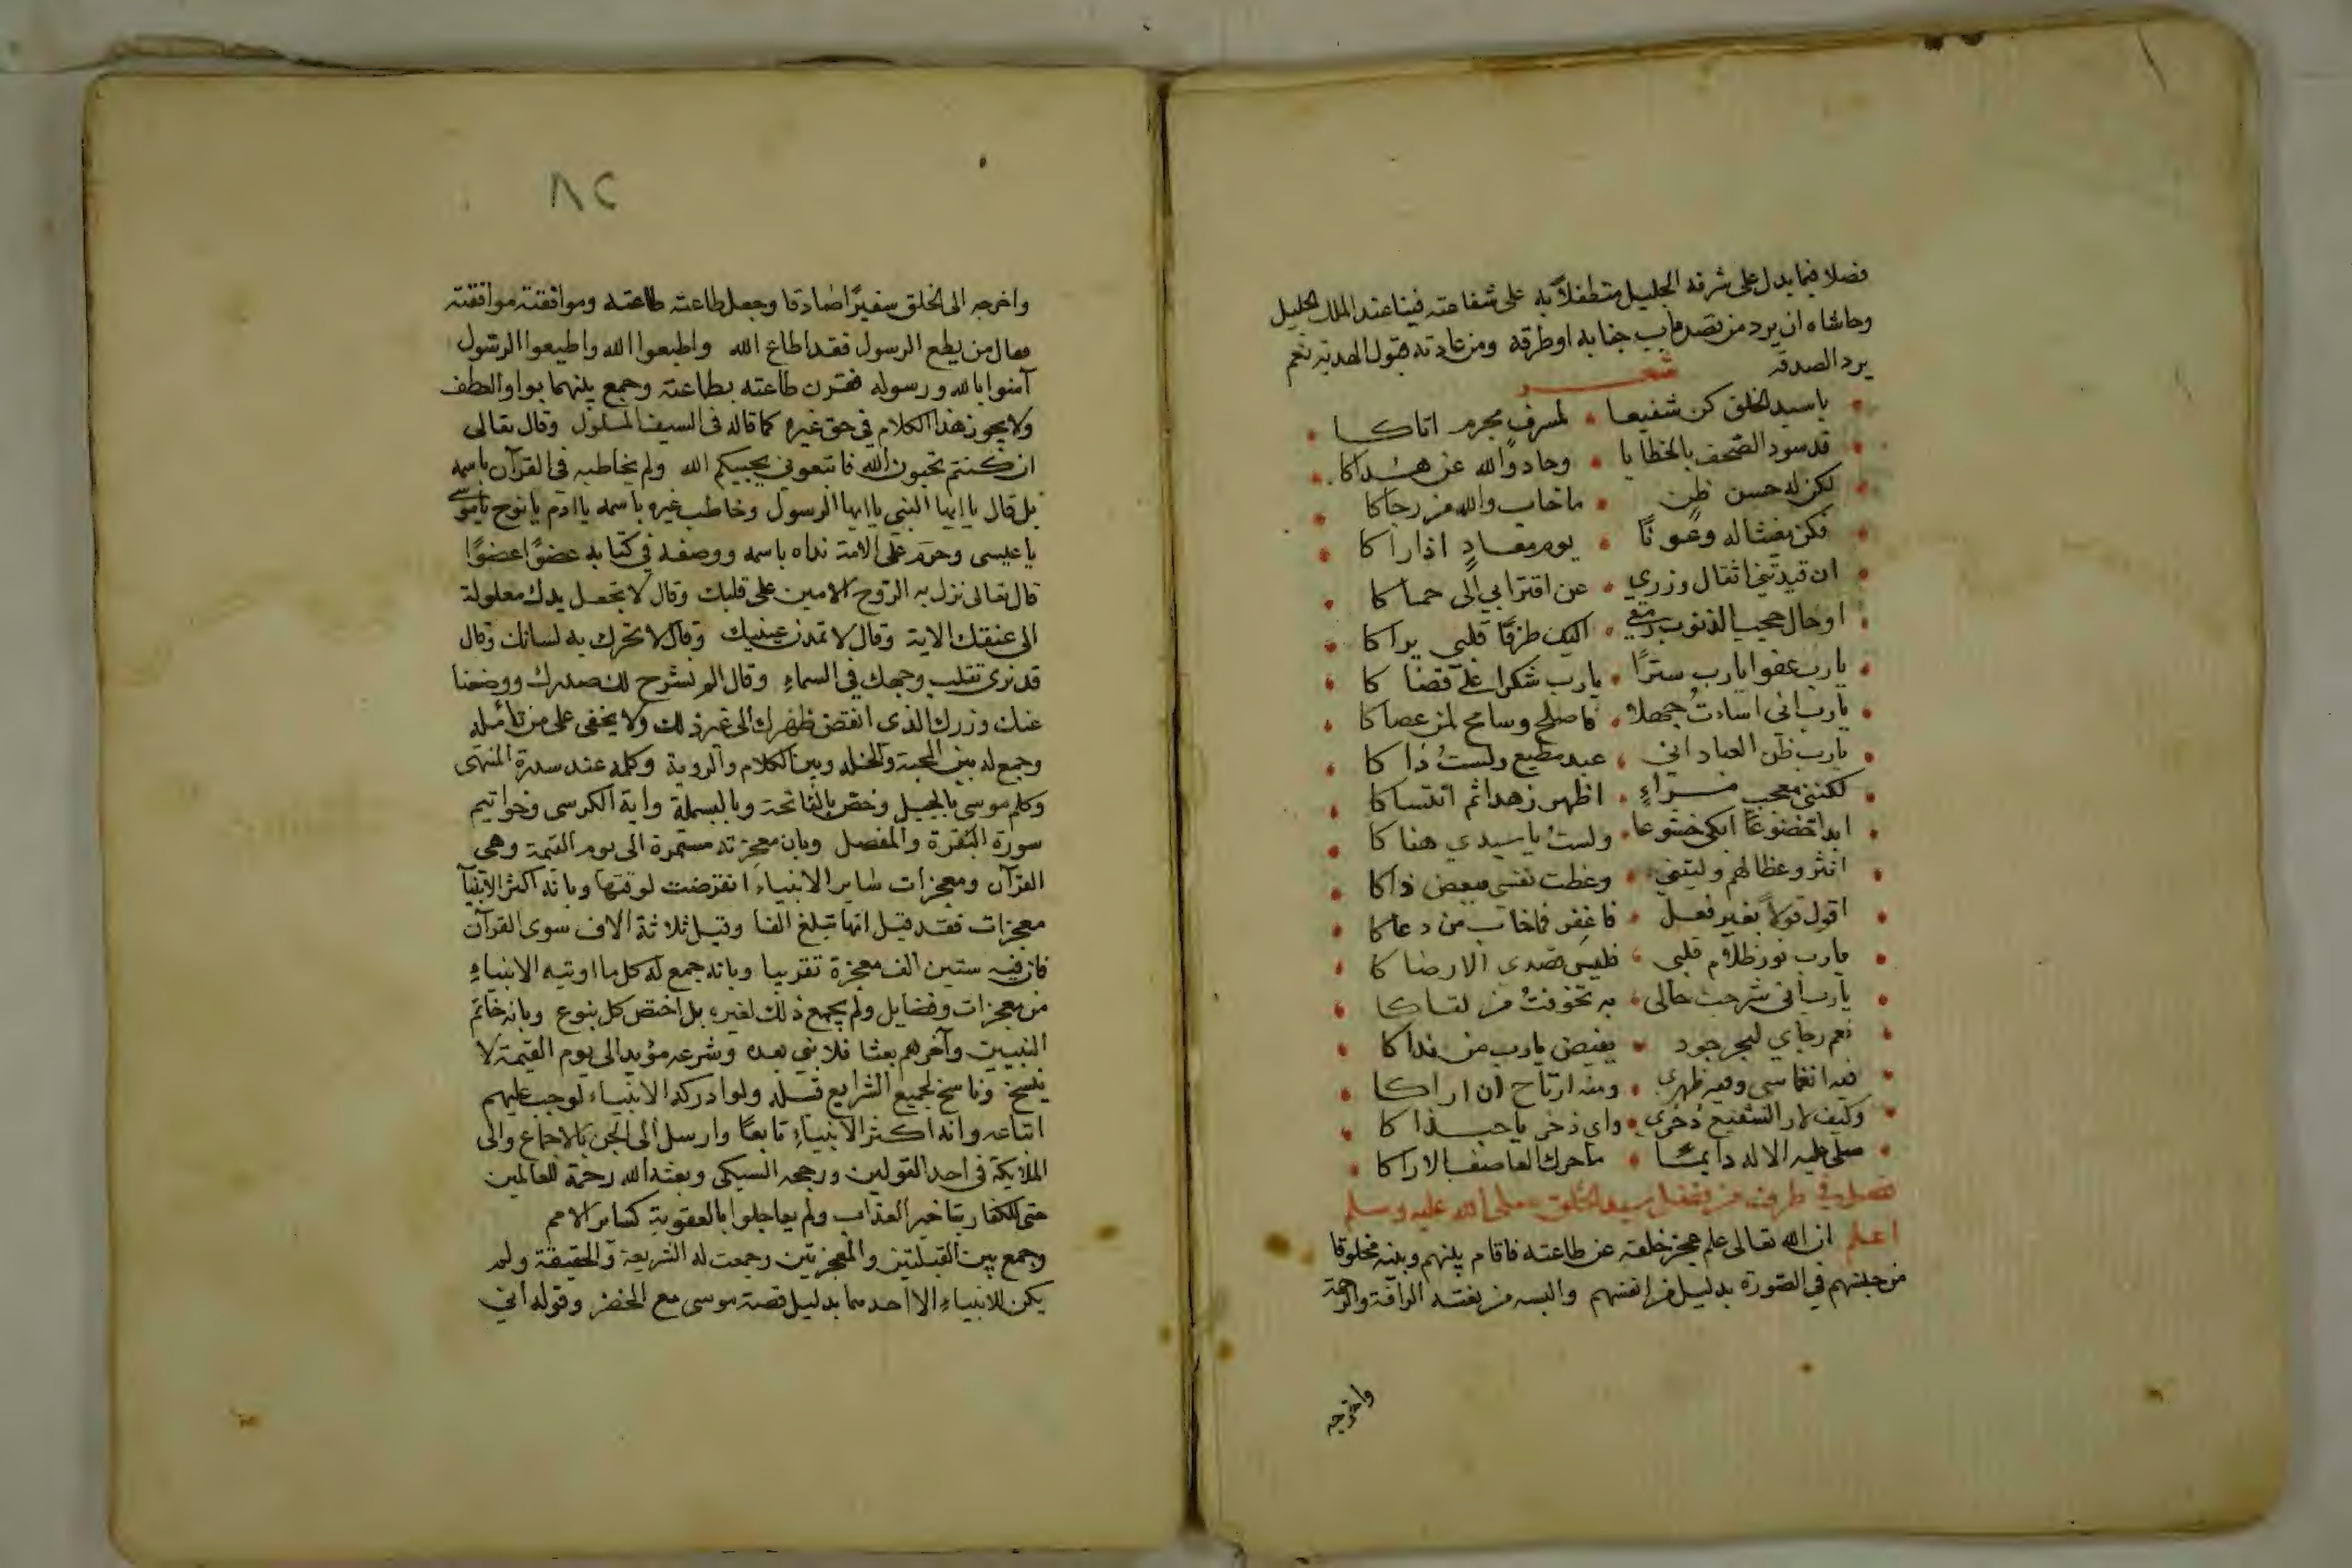 فضلا فيما يدل على شرفه الجليل متطفلاً به على شفاعته فينا عند الملك الجليل
وحاشاه ان يرد من قصد باب جنابه او طرقه ومن عادته قبول الهدية نعم
يرد الصدقه شعر
يا سيد الخلق كن شفيعا لمسرف مجرم اتاكا
قد سود الصحف بالخطايا وحاد والله عن هداكا
لكن له حسن ظن ما خاب والله من رجاكا
فكن مغيثا له وعونًا يوم معادٍ اذا راكا
ان قيدتني اثقال وزري عن اقترابي الى حماكا
او حال حجب الذنوب اليك طرفًا قلبي يراكا
يا رب عفوا يا رب سترًا يا رب شكرا على قضاكا
يا رب اني اسات جهلا فاصلح وسامح لمن عصاكا
يا رب ظن العباد اني عبد مطيع ولستُ ذاكا
لكنني معجب مراءٍ اظهر زهدا ثم انتساكا
ابدا تخضوعًا ابكي خشوعا ولستُ يا سيدي هناكا
انثر وعظا لهم وليتني وعظت نفسي ببعض ذاكا
اقول قولاً بغير فعل فاغفر فما خاب من دعاكا
يا رب نور ظلام قلبي فليس قصدي الا رضاكا
يا رب اني شرحت حالي به تخوفتُ من لقاكا
نعم رجاي لبحر جود يفيض يا رب من نداكا
فيه انغماسي وفيه ظهري ومنه ارتاح ان اراكا
وكيف لا والشفيع ذخري واي ذخر يا حبذاكا
صلى عليه الاله دايمًا ما حرك العاصف الاراكا
فصل في طرف من فضل سيد الخلق صلى الله عليه وسلم
اعلم ان الله تعالى علم عجز خلقه عن طاعته فاقام بينهم وبينه مخلوقا
من جنسهم في الصورة بدليل من انفسهم والبسه من نعته الرافة والرحمة
واخرجه
٨٢
واخرجه الى الخلق سفيرًا صادقا وجعل طاعته طاعته وموافقته موافقته
فقال من يطع الرسول فقد اطاع الله واطيعوا الله واطيعوا الرسول
آمنوا بالله ورسوله فقرن طاعته بطاعته وجمع بينهما بواو العطف
ولا يجوز هذا الكلام في حق غيره كما قاله في السيف المسلول وقال تعالى
ان كنتم تحبون الله فاتبعوني يحببكم الله ولم يخاطبه في القرآن باسمه
بل قال يا ايها النبي يا ايها الرسول وخاطب غيره باسمه يا ادم يا نوح يا موسى
يا عيسى وحرم على الامة نداه باسمه ووصفه في كتابه عضوًا عضوًا
قال تعالى نزل به الروح الامين على قلبك وقال لا تجعل يدك مغلولة
الى عنقك الاية وقال لا تمدن عينيك وقال لا تحرك به لسانك وقال
قد نرى تقلب وجهك في السماء وقال الم نشرح لك صدرك ووضعنا
عنك وزرك الذي انقض ظهرك الى غير ذلك ولا يخفى على من تامله
وجمع له بين المحبة والخلة وبين الكلام والروية وكلمه عند سدرة المنتهى
وكلم موسى بالجبل وخص بالفاتحة وبالبسملة واية الكرسي وخواتيم
سورة البقرة والمفصل وبان معجزته مستمرة الى يوم القيمة وهي
القرآن ومعجزات ساير الانبياء انقرضت لوقتها وبانه اكثر الانبيآ
معجزات فقد قيل انها تبلغ الفا وقيل ثلاثة الاف سوى القرآن
فان فيه ستين الف معجزة تقريبا وبانه جمع له كل ما اوتيه الانبياء
من معجزات وفضايل ولم يجمع ذلك لغيره بل اختص كل بنوع وبانه خاتم
النبيين وآخرهم بعثا فلا نبي بعده وشرعه مؤبد الى يوم القيمة لا
ينسخ وناسخ لجميع الشرايع قبله ولو ادركه الانبياء لوجب عليهم
اتباعه وانه اكثر الانبياء تابعًا وارسل الى الجن بالاجماع والى
الملايكة في احد القولين ورجحه السبكي وبعثه الله رحمة للعالمين
حتى الكفار بتاخير العذاب ولم يعاجلوا بالعقوبة كساير الامم
وجمع بين القبلتين والهجرتين وجمعت له الشريعة والحقيقة ولم
يكن للانبياء الا احدهما بدليل قصة موسى مع الخضر وقوله اني